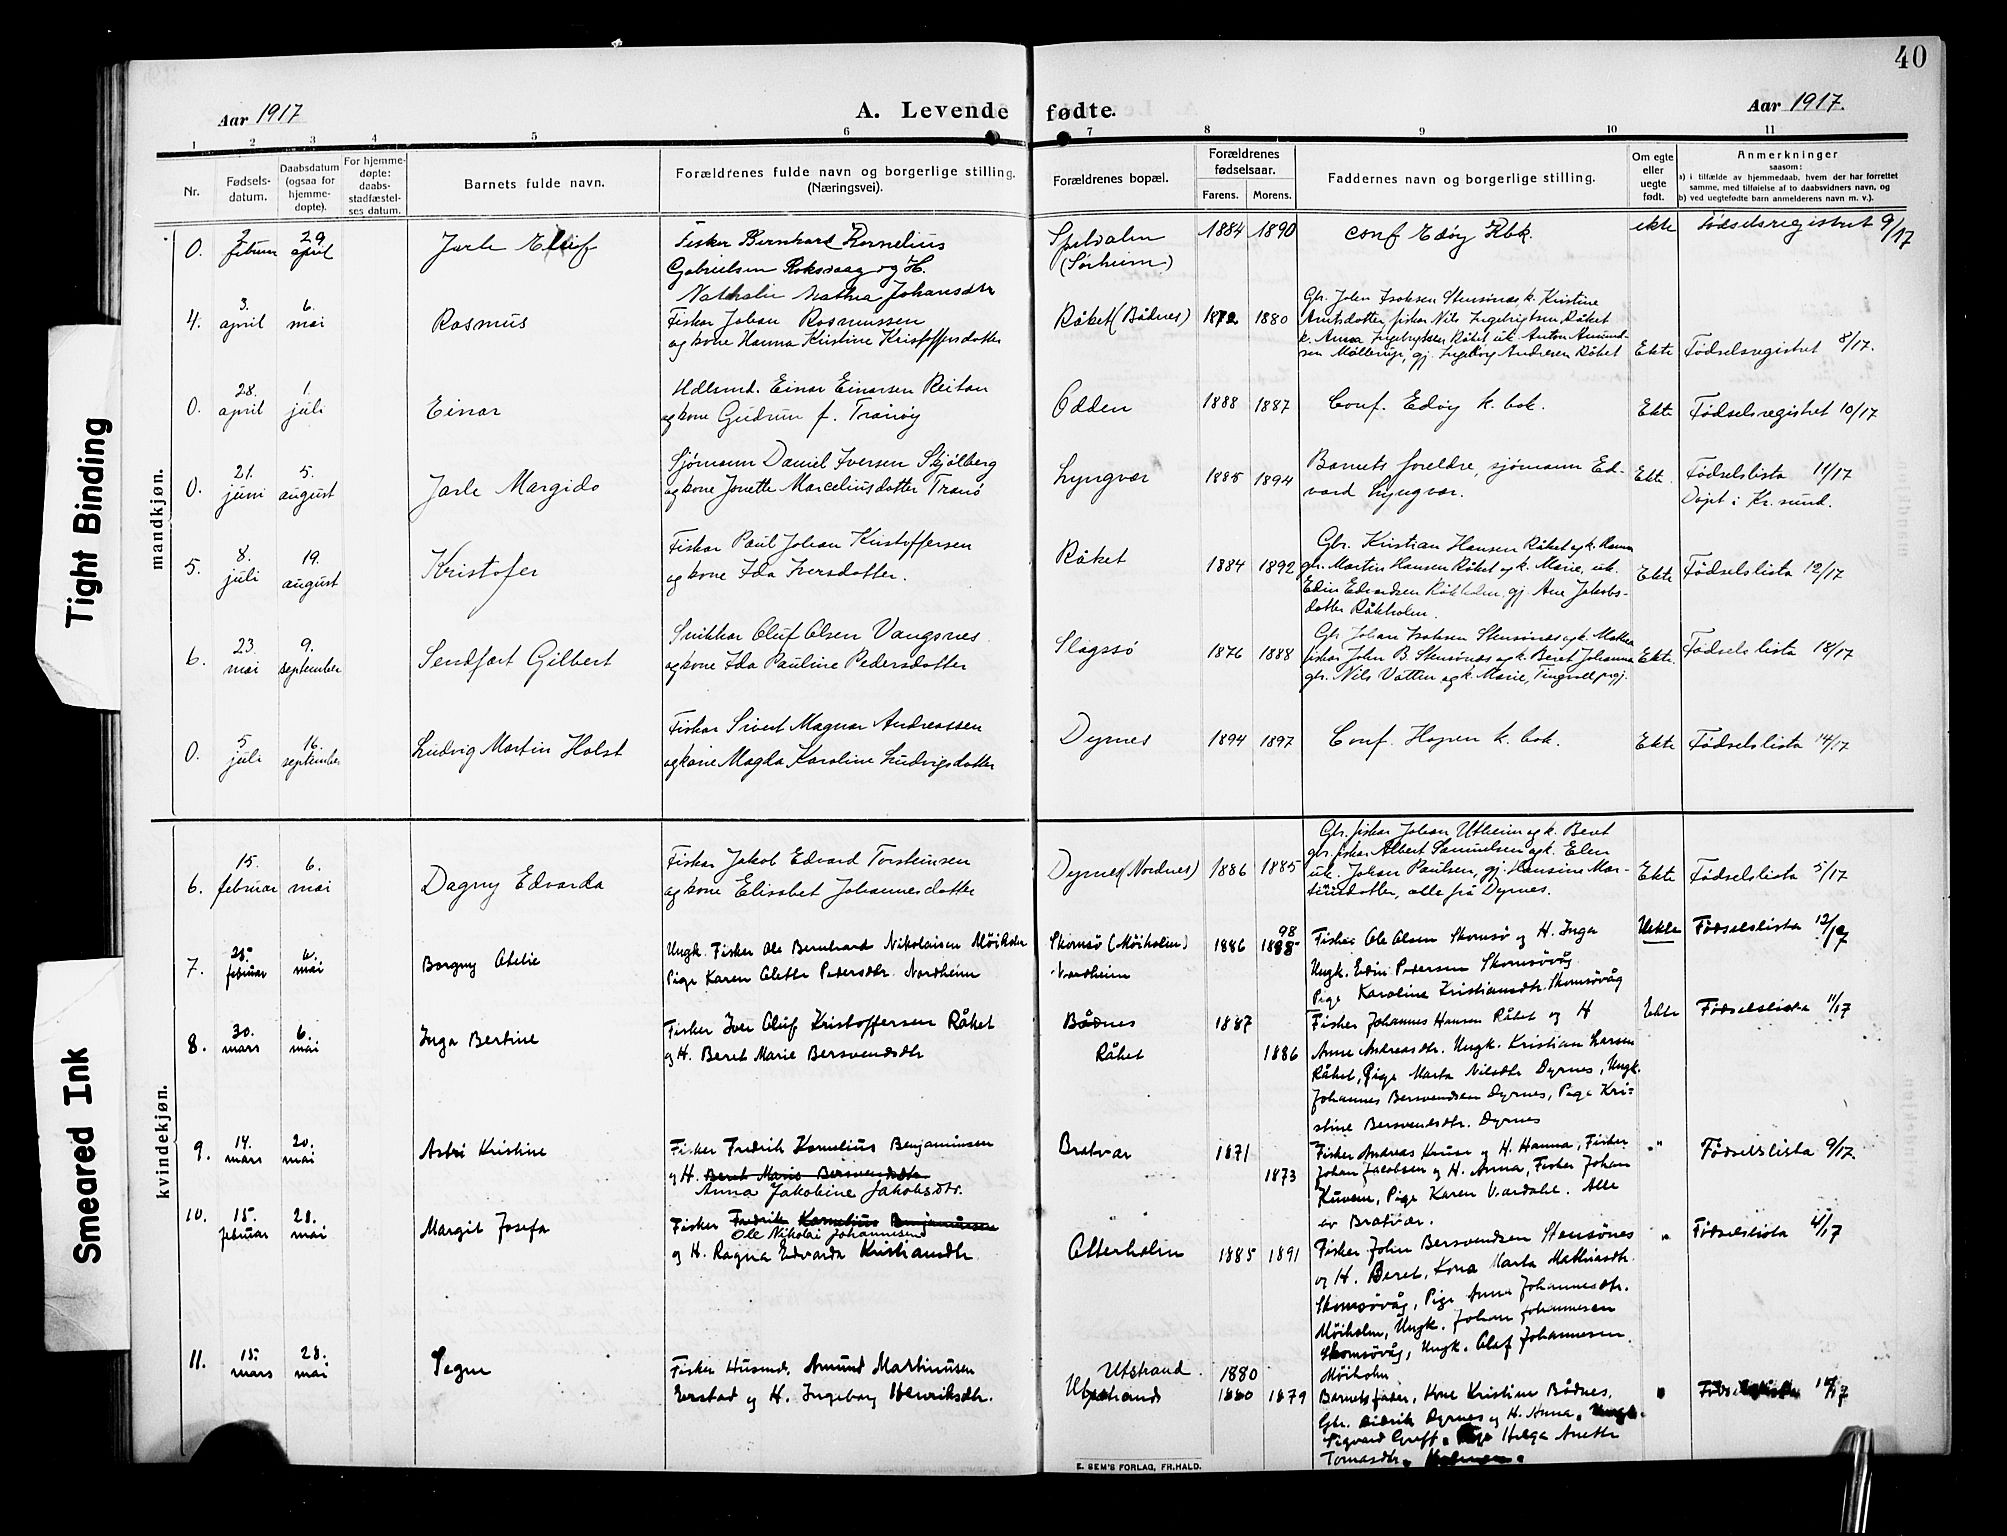 40
Aar 1917
A. Levende fødte.
Aar 1917.
1 2 3 4 5 6 7 8 9 10 11
Nr.
Fødsels-
datum.
Daabsdatum
(ogsaa for
hjemme-
døpte).
For hjemme-
døpte:
daabs-
stadfæstel-
ses datum.
Barnets fulde navn.
Forældrenes fulde navn og borgerlige stilling.
(Næringsvei).
Forældrenes bopæl.
Forældrenes
fødselsaar.
Farens. Morens.
Faddernes navn og borgerlige stilling.
Om egte
eller
uegte
født.
Anmerkninger
saasom:
a) i tilfælde av hjemmedaab, hvem der har forrettet
samme, med tilføielse af to daabsvidners navn, og
b) ved uegtefødte barn anmelderens navn m. v.).
mandkjøn.
0. 2. februar 29. april
Jarle Eluf
Fisker Bernhard Kornelius
Gabrielsen Roksvaag og H.
Nathalie Mathea Johansdtr
Speldalen
(Sørheim)
1884 1890
conf Edøy Kbk.
ekte
Fødselsregistret 9/17
4. 3. april 6. mai
Rasmus
Fiskar Johan Rasmussen
og kone Hanna Kristine Kristoffersdotter
Råket (Bådnes)
1872 1880
Gbr. John Isaksen Stensønes, k. Kristine
Arntsdotter, fiskar Nils Ingebrigtsen Råket
k. Anna Ingebrigtsen Råket, uk. Anton Amund-
sen Møllerup, gj. Ingeborg Andresen Råket
Ekte
Fødselsregistret 8/17.
0. 28. april 1. juli
Einar
Hdlsmd. Einar Einarsen Reitan
og kone Gudrun f. Tranøy
Odden
1888 1887
Conf. Edøy k. bok.
Ekte
Fødselsregistret 10/17
0. 21. juni 5. august
Jarle Margido
Sjømann Daniel Iversen Skjølberg
og kone Jonette Marceliusdotter Tranø
Lyngvær
1885 1894
Barnets foreldre, sjømann Ed-
vard Lyngvær.
Ekte.
Fødselslista 11/17
Døpt i Kr.sund.
5. 8. juli 19. august
Kristofer
Fiskar Paul Johan Kristoffersen
og kone Ida Iversdotter.
Råket
1884 1892
Gbr. Kristian Hansen Råket og k. Hanna
gbr. Martin Hansen Råket og k. Marie, uk.
Edin Edvardsen Råkholm, gj. Ane Jakobs-
dotter Råkholm.
Ekte
Fødselslista 12/17
6. 23. mai 9. september
Sendfart Gilbert
Snikkar Oluf Olsen Vangsnes
og kone Ida Pauline Pedersdotter
Slagssø
1876 1888
Gbr. Johan Isaksen Stensønes og k. Mathea
fiskar John B. Stensønes og k. Beret Johanna
gbr. Nils Vatten og k. Marie, Tingvoll prgj.
Ekte.
Fødselslista 18/17
0. 5. juli 16. september
Ludvig Martin Holst
Fiskar Sivert Magnar Andreassen
og kone Magda Karoline Ludvigsdotter
Dyrnes
1894 1897
Conf. Hopen k. bok.
Ekte
Fødselslista 14/17
kvindekjøn.
6. 15. februar 6. mai
Dagny Edvarda
Fiskar Jakob Edvard Torsteinsen
og kone Elisabet Johannesdotter
Dyrnes (Nordnes)
1886 1885
Gbr. fiskar Johan Utheim og k. Beret
gbr. fiskar Albert Samuelsen og k. Elen
uk. Johan Paulsen, gj. Hansine Mar-
tinusdotter, alle frå Dyrnes.
Ekte
Fødselslista 5/17
7. 25. februar 6. mai
Borgny Otelie
Ungk. Fisker Ole Bernhard Nikolaisen Møiholm
Pige Karen Olette Pedersdtr. Nordheim
Skomsø (Møiholm)
Nordheim
1886 1888 98
Fisker Ole Olsen Skomsø og H. Inga
Ungk. Edin Pedersen Skomsøvåg
Pige Karoline Kristiansdtr. Skomsøvåg
Uekte
Fødselslista 12/17
8. 30. mars 6. mai
Inga Bertine
Fisker Iver Oluf Kristoffersen Råket
og H. Beret Marie Bersvendsdtr
Bådnes
Råket
1887
1886
Fisker Johannes Hansen Råket og H
Anne Andreasdtr. Ungk. Kristian Larsen
Råket, Pige Marta Nilsdtr Dyrnes, Ungk.
Johannes Bersvendsen Dyrnes, Pige Kri-
stine Bersvendsdtr. Dyrnes
Ekte
Fødselsliska 11/17
9. 14. mars 20. mai
Astri Kristine
Fisker Fredrik Kornelius Benjaminsen
og H. Beret Marie Bersvendsdtr
Anna Jakobine Jakobsdtr.
Bratvær
1871
1873
Fisker Andreas Kruse og H. Hanna, Fisker
Johan Jacobsen og H. Anna, Fisker Johan
Kuven, Pige Karen Vardahl. Alle
av Bratvær.
"
Fødselslista 9/17.
10. 15. februar 28. mai
Margit Josefa
Fisker Fredrik Kornelius Benjaminsen
Ole Nikolai Johannesen
og H. Ragna Edvarda Kristiansdtr.
Otterholm
1885 1891
Fisker John Bersvendsen Stensønes
og H. Beret, Kona Marta Mathiasdtr.
Skomsøvåg, Pige Anna Johannesdtr.
Møiholm, Ungk. Johan Johannesen
Skomsøvåg, Ungk. Olaf Johannesen
Møiholm
"
Fødselslista 4/17
11. 15. mars 28. mai
Signe
Fisker Husmd. Amund Martinusen
Eerstad og H. Ingeborg Henriksdtr.
Utstrand.
Utstrand
1880
1880 1879
Barnets fader, Kone Kristine Bådnes,
Gbr. Didrik Dyrnes og H. Anna, Ungk.
Sigvard Greff, Pige Helga Anette
Tomasdtr.
"
Fødselslista
E. SEM'S FORLAG, FR.HALD.
Tight Binding
Smeared Ink